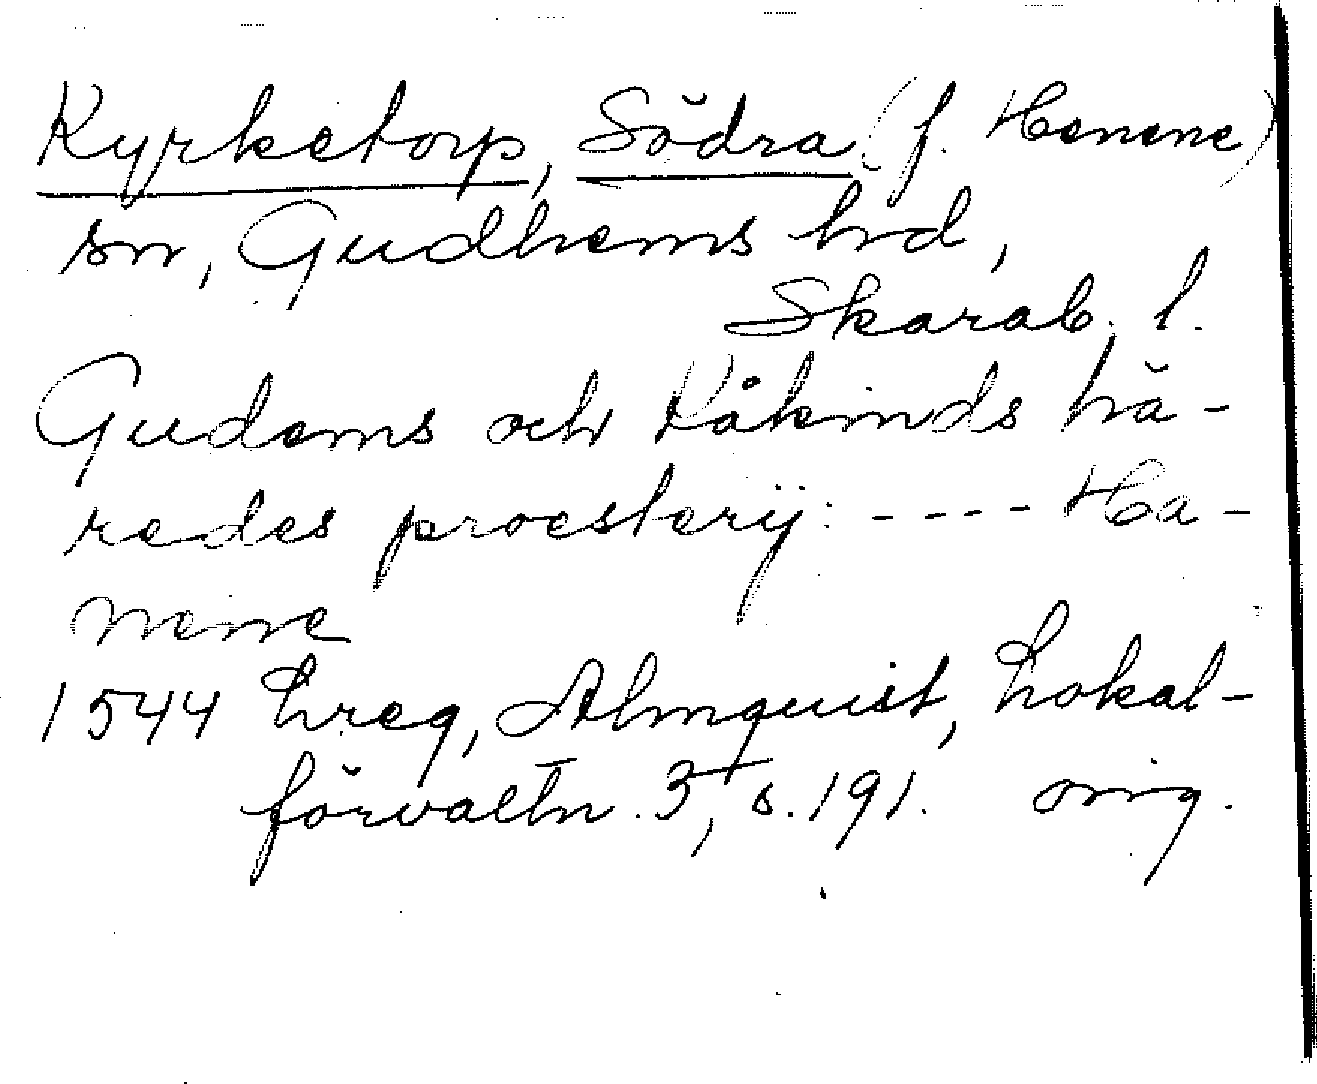 Kyrketorp, Södra (f. Henene)
sn, Gudhems hrd,
Skarab. l.
Gudems och Kåkinds hä-
redes proesterij: ---- Ha-
nene
1544 Lreg, Almquist, Lokal-
förvaltn. 3, s. 191. orig.